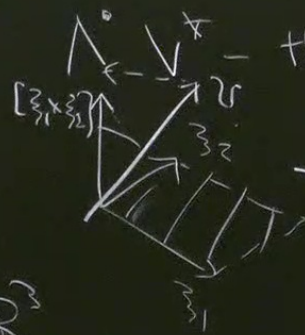 Λ° V* - +
[ξ₁×ξ₂] v
ξ₂
ξ₁
3